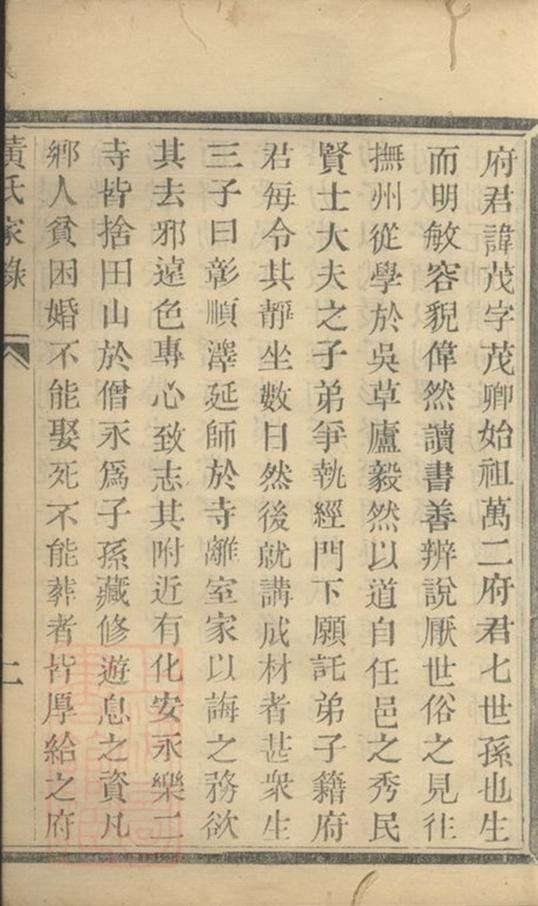 府君諱茂字茂卿始祖萬二府君七世孫也生
而明敏容貌偉然讀書善辨說厭世俗之見往
撫州從學於吳草廬毅然以道自任邑之秀民
賢士大夫之子弟爭執經門下願託弟子籍府
君每令其靜坐數日然後就講成材者甚衆生
三子曰彰順澤延師於寺離室家以誨之務欲
其去邪遠色專心致志其附近有化安永樂二
寺皆捨田山於僧永爲子孫藏修遊息之資凡
鄉人貧困婚不能娶死不能葬者皆厚給之府
黃氏家錄
二